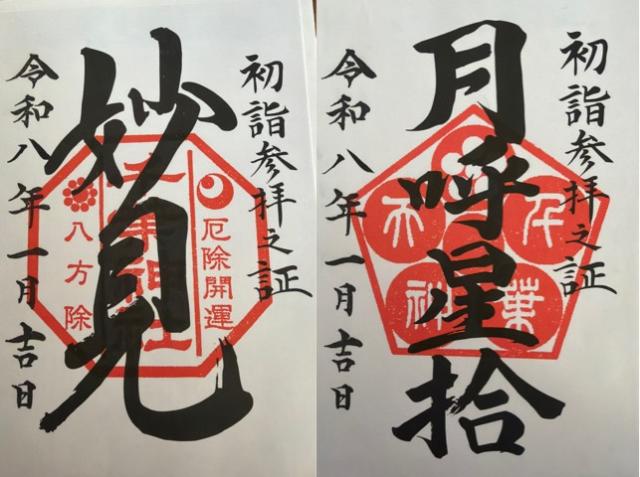 初詣参拝之証
妙見
厄除開運
八方除
令和八年一月吉日
初詣参拝之証
月呼星拾
千
葉
神
令和八年一月吉日